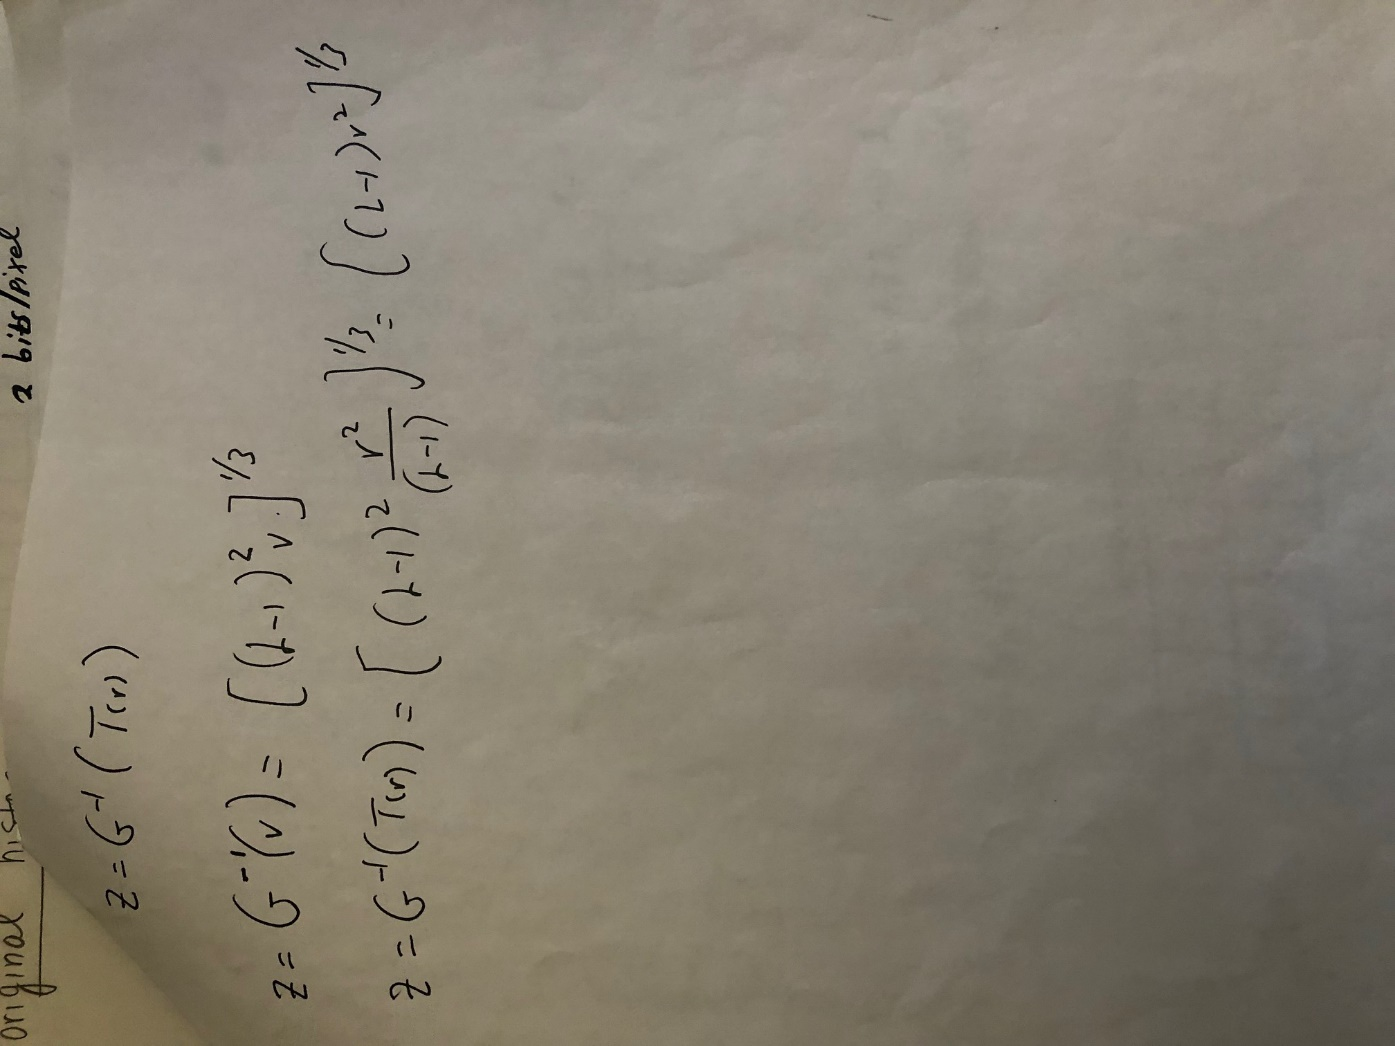 original
2 bits/pixel
z = G⁻¹(T(r))
z = G⁻¹(v) = [(L-1)² v.]^1/3
z = G⁻¹(T(r)) = [(L-1)² r²/(L-1)]^1/3 = [(L-1)r²]^1/3